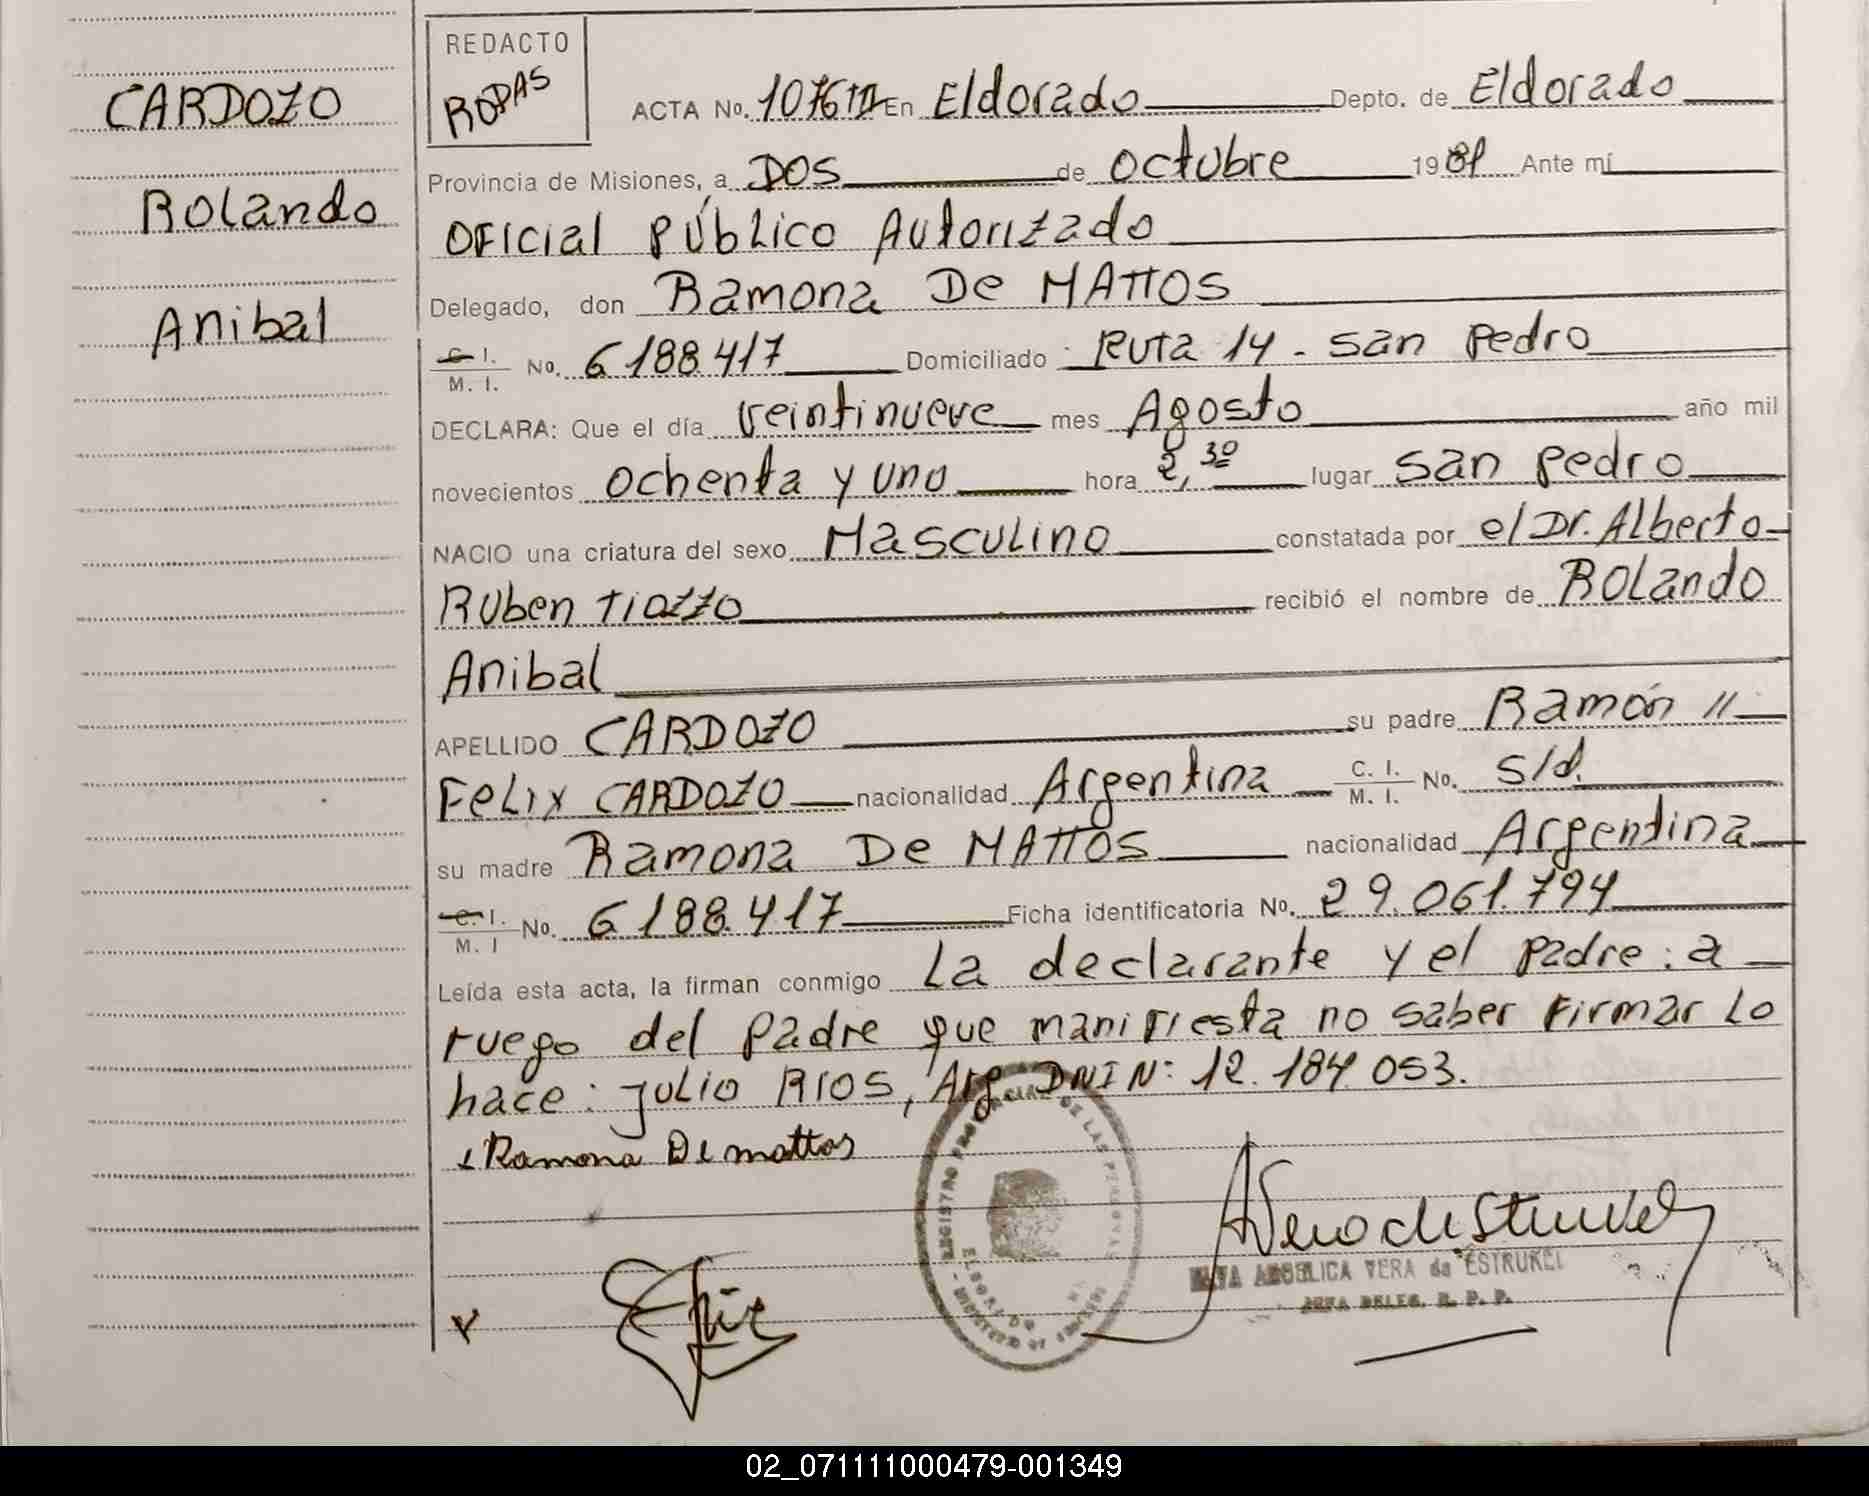 CARDOZO
Rolando
Anibal
REDACTO
RODAS
ACTA No. 1076 III En Eldorado Depto. de Eldorado
Provincia de Misiones, a DOS de Octubre 1981 Ante mí
Oficial Público Autorizado
Delegado, don Ramona De MATTOS
C. I. M. I. No. 6188417 Domiciliado Ruta 14 - San Pedro
DECLARA: Que el día veintinueve mes Agosto año mil
novecientos ochenta y uno hora 2,30 lugar San Pedro
NACIO una criatura del sexo Masculino constatada por el Dr. Alberto
Ruben Tiozzo recibió el nombre de Rolando
Anibal
APELLIDO CARDOZO su padre Ramón //
Felix CARDOZO nacionalidad Argentina C. I. M. I. No. s/d.
su madre Ramona De MATTOS nacionalidad Argentina
C. I. M. I No. 6188.417 Ficha identificatoria No. 29.061.794
Leída esta acta, la firman conmigo La declarante y el padre: a
ruego del padre que manifiesta no saber firmar lo
hace: Julio RIOS, Arg DNI N: 12.184.053.
Ramona De mattos
REGISTRO PROVINCIAL DE LAS PERSONAS
ELDORADO
ANGELICA VERA de ESTRUKEL
JEFA DELEG. R. P. P.
02_071111000479-001349